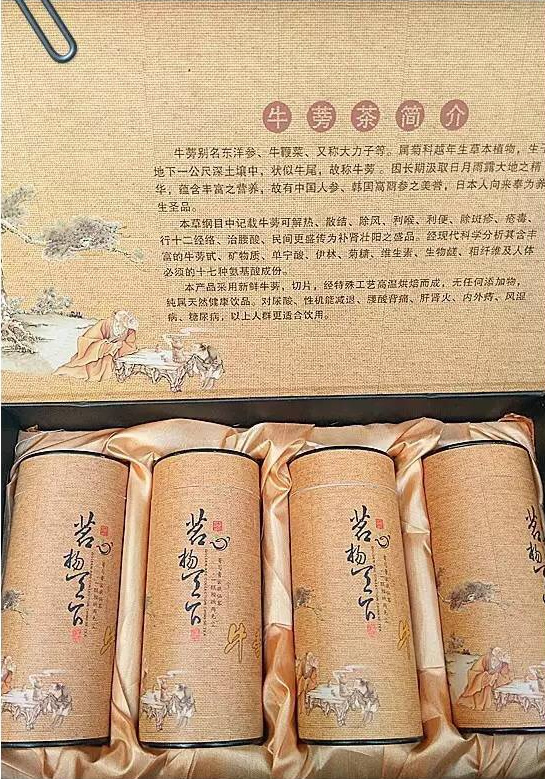 牛蒡茶简介
牛蒡别名东洋参、牛鞭菜、又称大力子等。属菊科越年生草本植物，生于
地下一公尺深土壤中，状似牛尾，故称牛蒡。因长期汲取日月雨露大地之精
华，蕴含丰富之营养，故有中国人参、韩国高丽参之美誉，日本人向来奉为养
生圣品。
本草纲目中记载牛蒡可解热、散结、除风、利喉、利便、除斑疹、疮毒、
行十二经络、治腰酸、民间更盛传为补肾壮阳之盛品。经现代科学分析其含丰
富的牛蒡甙、矿物质、单宁酸、伊林、菊糖、维生素、生物鹾、粗纤维及人体
必须的十七种氨基酸成份。
本产品采用新鲜牛蒡，切片，经特殊工艺高温烘焙而成，无任何添加物，
纯属天然健康饮品。对尿酸、性机能减退、腰酸背痛、肝肾火、内外痔、风湿
病、糖尿病，以上人群更适合饮用。
茗物天下
茗物天下
牛
茗物天下
牛
茗物天下